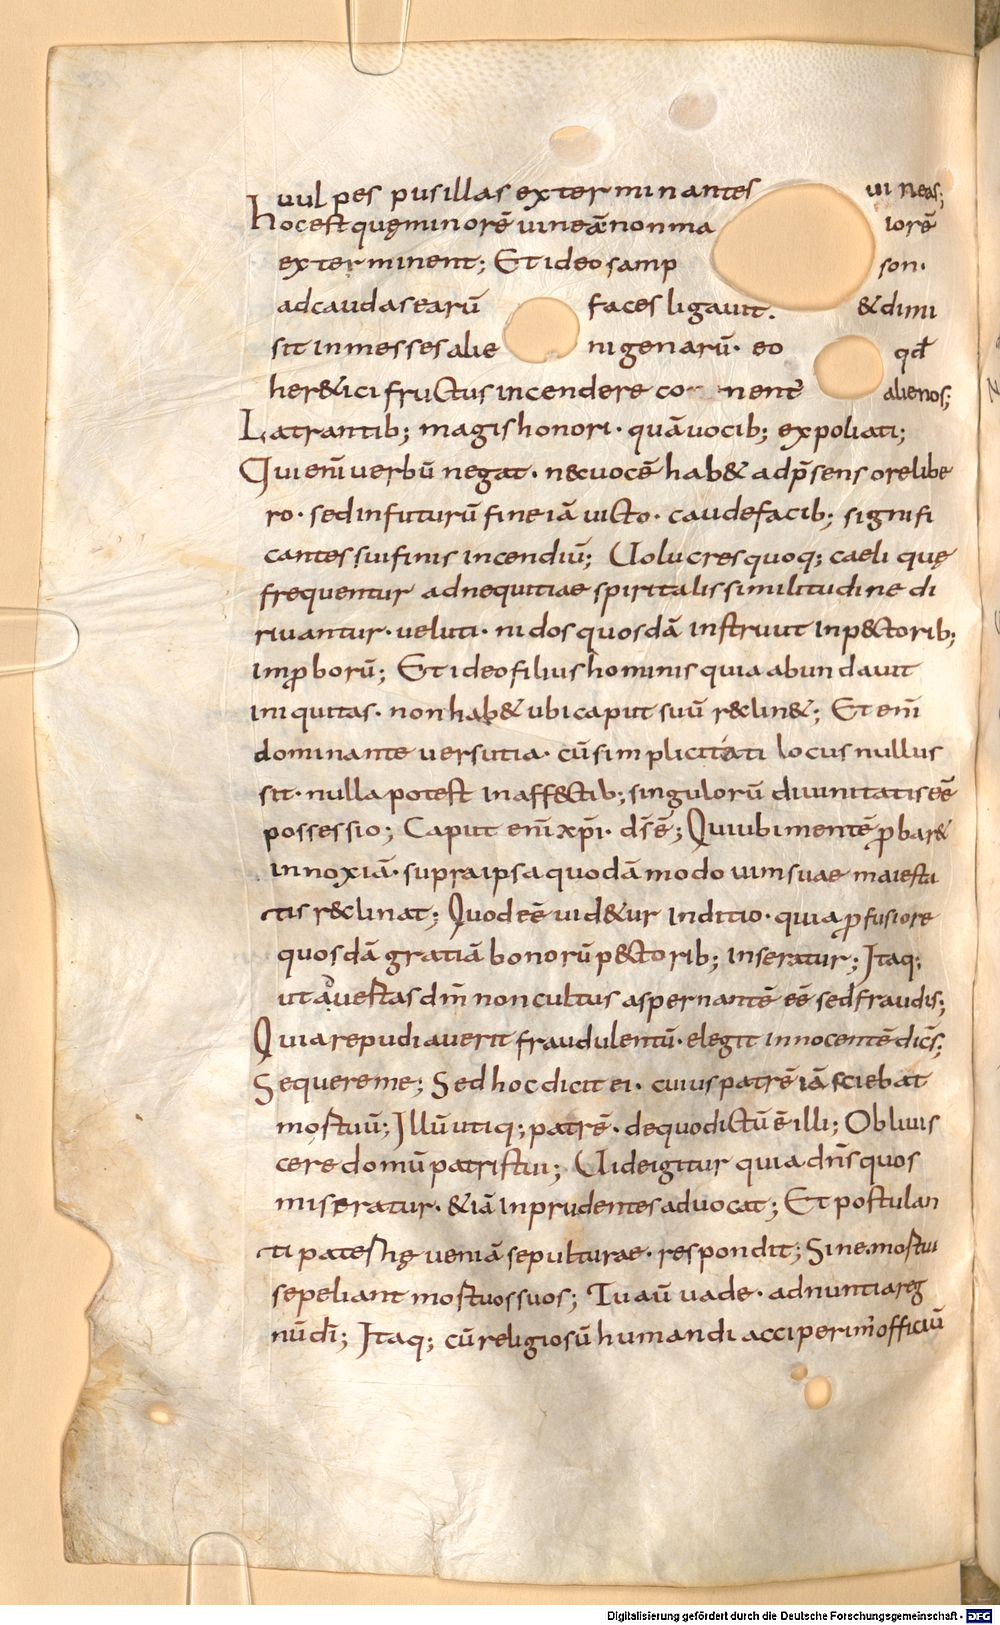 uulpes pusillas exterminantes uineas;
hocest quęminorē uineā nonma iorē
exterminent; Et ideo samp son·
ad caudas earū faces ligauit. & dimi
sit in messes alie nigenarū· eo qđ
her&ici fructus incendere co nent' alienos;
Latrantib; magis honori· quā uocib; expoliati;
Qui enī uerbū negat· nec uocē hab& ad p̄sens ore libe
ro· sed in futurū fine iā uicto· caude facib; signifi
cantes sui finis incendiū; Uolucres quoq; caeli quę
frequentur ad nequitiae spiritalis similitudine di
riuantur· veluti· nidos quosdā instruut in pectorib;
improborū; Et ideo filius hominis quia abundauit
iniquitas· non hab& ubi caput suū reclin&; Et enī
dominante uersutia· cū simplicitati locus nullus
sit· nulla potest in affectib; singulorū diuinitatis eē
possessio; Caput enī xp̄i· d̄s ē; Qui ubi mentē ꝓbar&
innoxiā· supra ipsa quodā modo uim suae maiesta
tis reclinat; Quod eē uid&ur inditio· quia ꝓfusiore
quosdā gratiā bonorū pectorib; inseratur; Itaq;
ut aduertas dn̄i non cultus aspernantē eē sed fraudis;
Quia repudiauerit fraudulentū· elegit innocentē dic̄s;
Sequere me; Sed hoc dicit ei· cuius patrē iā sciebat
mortuū; Illū utiq; patrē· de quo dictū ē illi; Obliuis
cere domū patris tui; Uide igitur quia dn̄s quos
miseratur· & iā inprudentes aduocat; Et postulan
ti paterne ueniā sepulturae· respondit; Sine mortui
sepeliant mortuos suos; Tu aū uade· adnuntia reg
nū dī; Itaq; cū religiosū humandi acciperim' officiū
Digitalisierung gefördert durch die Deutsche Forschungsgemeinschaft - DFG